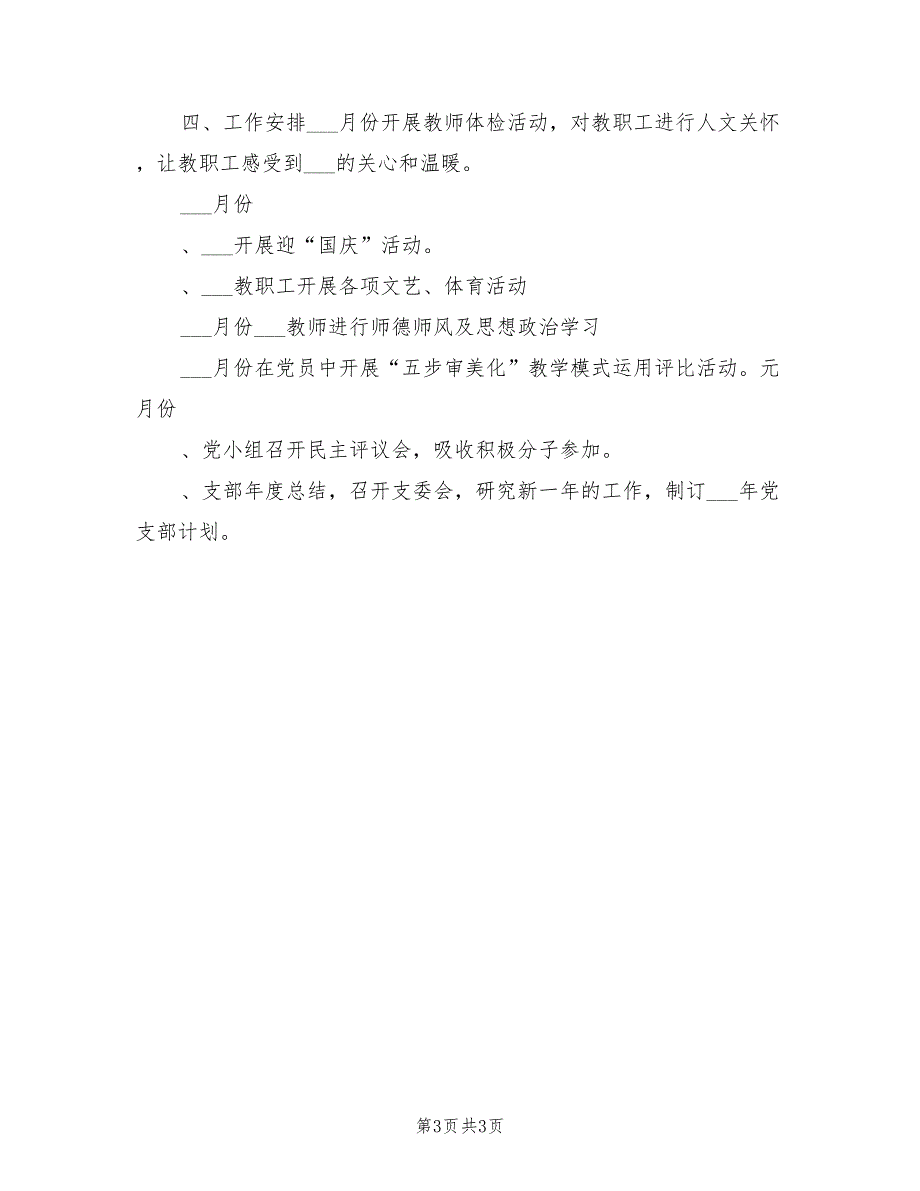 四、工作安排___月份开展教师体检活动，对教职工进行人文关怀
，让教职工感受到___的关心和温暖。
___月份
、___开展迎“国庆”活动。
、___教职工开展各项文艺、体育活动
___月份___教师进行师德师风及思想政治学习
___月份在党员中开展“五步审美化”教学模式运用评比活动。元
月份
、党小组召开民主评议会，吸收积极分子参加。
、支部年度总结，召开支委会，研究新一年的工作，制订___年党
支部计划。
第3页 共3页